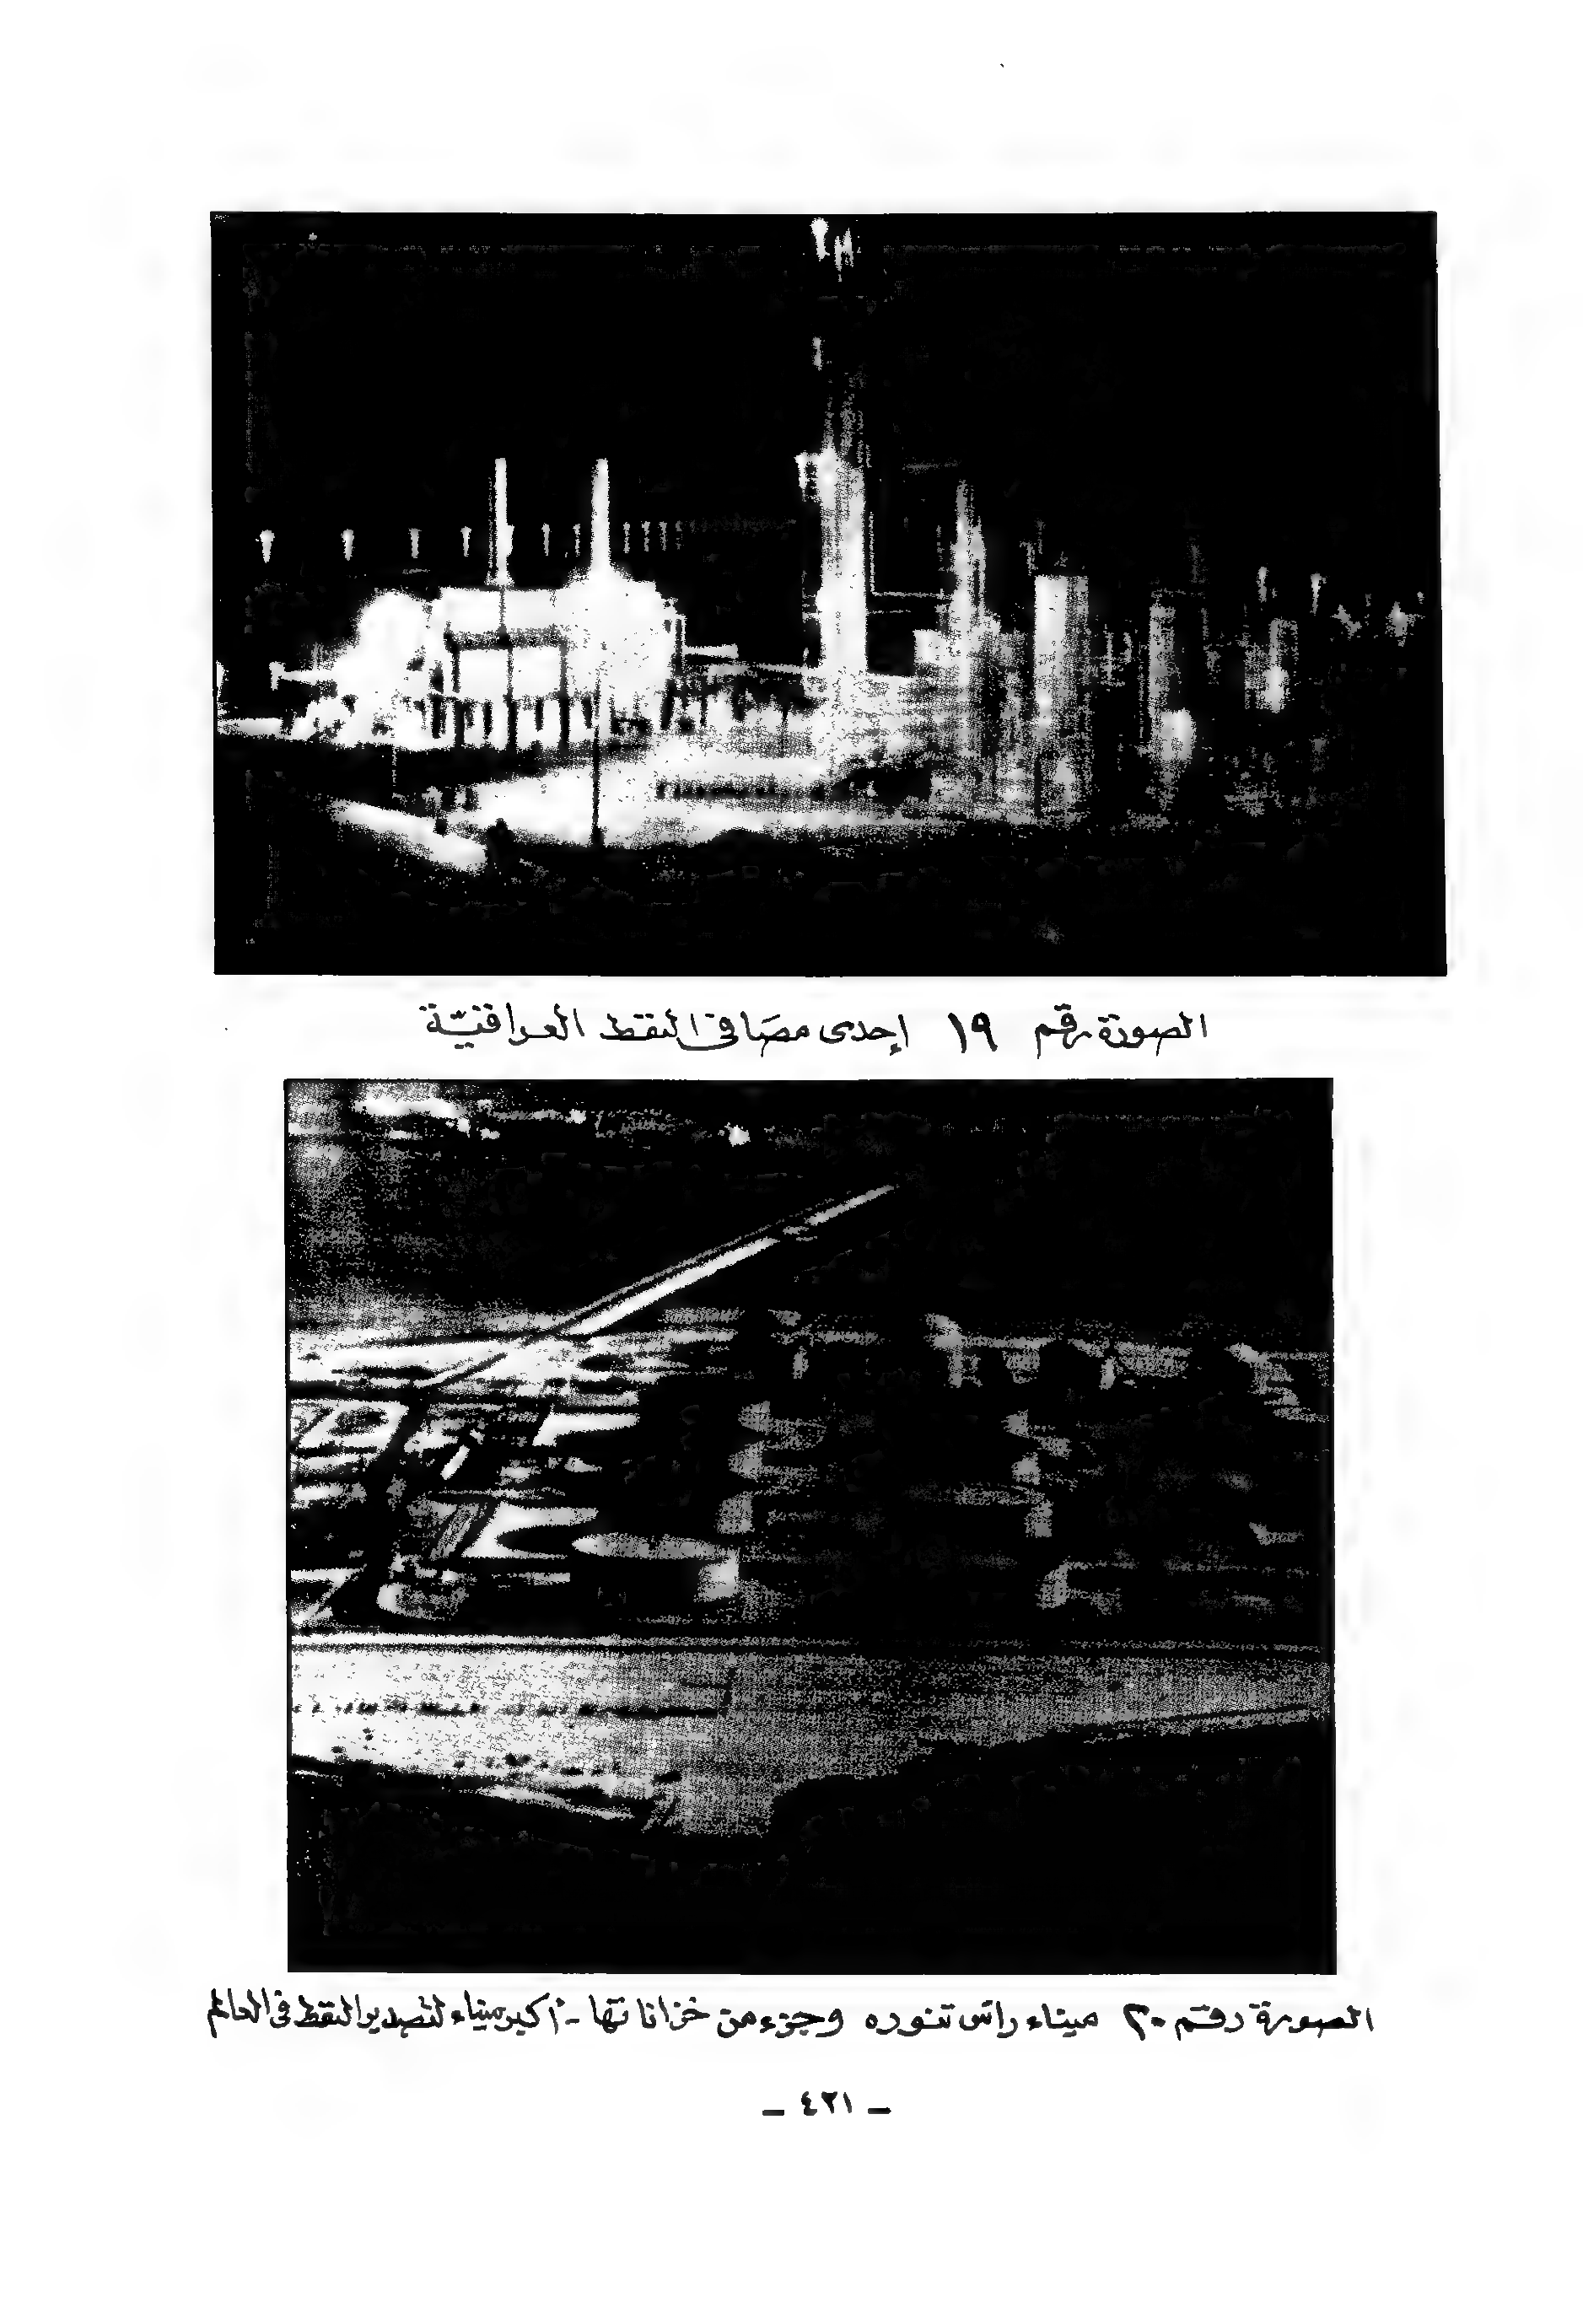 الصورة رقم ١٩ إحدى مصَافي النفط العراقيّة
الصورة رقم ٢٠ ميناء رأس تنوره وجزء من خزاناتها - أكبر ميناء لتصدير النفط في العالم
- ٤٢١ -